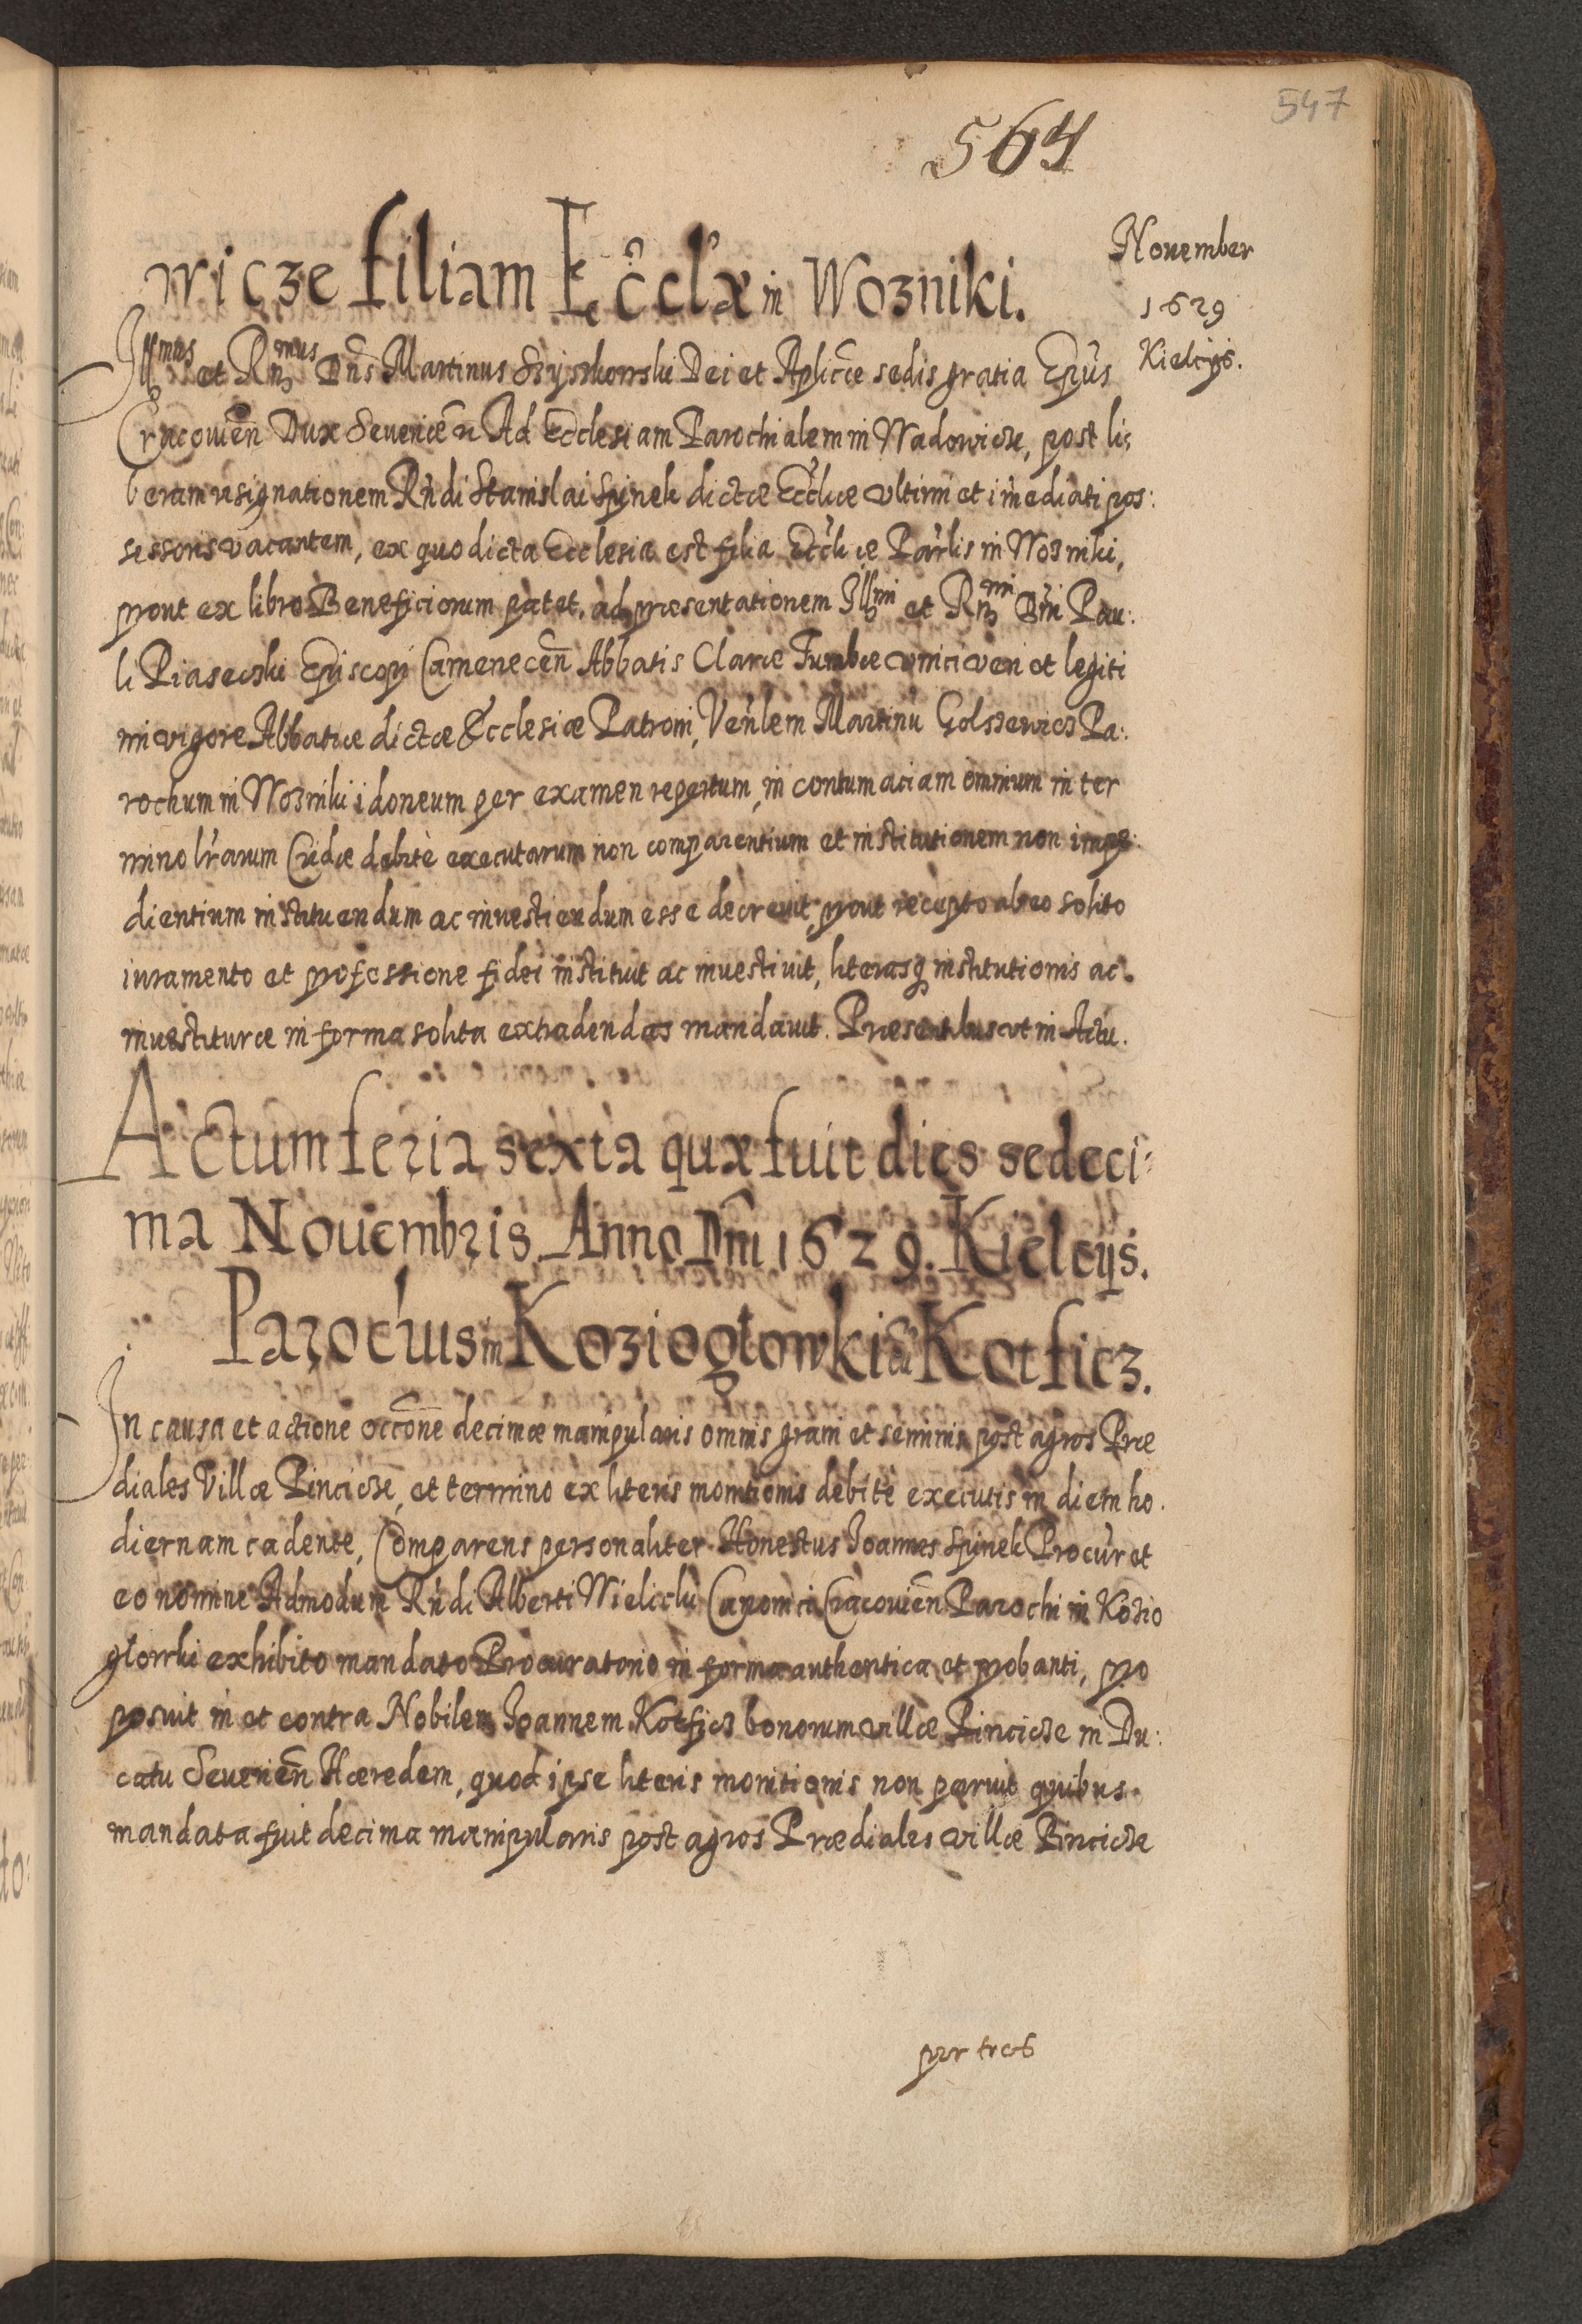 547
564
November
1629
Kielcijs.
wicze filiam Eccłæ in Wozniki.
Illmus et Rmus Dns Martinus Szyszkowski Dei et Aplicæ sedis gratia Epus
Cracouien Dux Seuerien Ad Ecclesiam Parochialem in Wadowicze, post li:
beram resignationem Rndi Stanislai Spinek dictæ Eccliæ vltimi et imediati pos:
sessoris vacantem, ex quo dicta Ecclesia est filia Eccliæ Parlis in Wozniki,
prout ex libro Beneficiorum patet, ad præsentationem Illmi et Rmi Dni Pau:
li Piaseczki Episcopi Camenecen Abbatis Claræ Tumbæ vnici veri et legiti
mi vigore Abbatiæ dictæ Ecclesiæ Patroni, Venlem Martinu Golszewicz Pa:
rochum in Wozniki idoneum per examen repertum, in contumaciam omnium in ter
mino lrarum Cridæ debitè executarum non comparentium et institutionem non impe:
dientium instituendum ac inuestiendum esse decreuit, prout recepto ab eo solito
iuramento et professione fidei instituit ac inuestiuit, literasq institutionis ac
inuestituræ in forma solita extradendas mandauit. Præsentibus vt in Actu.
Actum feria sexta quæ fuit dies sedeci:
ma Nouembris Anno Dni 1629. Kielcijs.
Parochus in Koziogłowki cu Kotficz.
In causa et actione occone decimæ manipularis omnis grani et seminis post agros Præ
diales Villæ Pincicze, et termino ex literis monitionis debitè executis in diem ho.
diernam cadente, Comparens personaliter Honestus Joannes Spinek Procur et
eo nomine Admodum Rndi Alberti Wielicki Canonici Cracouien Parochi in Kozio
glowki exhibito mandato Procuratorio in forma authentica et probanti, pro
posuit in et contra Nobilem Joannem Kotficz bonorum villæ Pincicze in Du:
catu Seuerien Hæredem, quod ipse literis monitionis non paruit quibus
mandata fuit decima manipularis post agros Prædiales villæ Pincicze
per tres